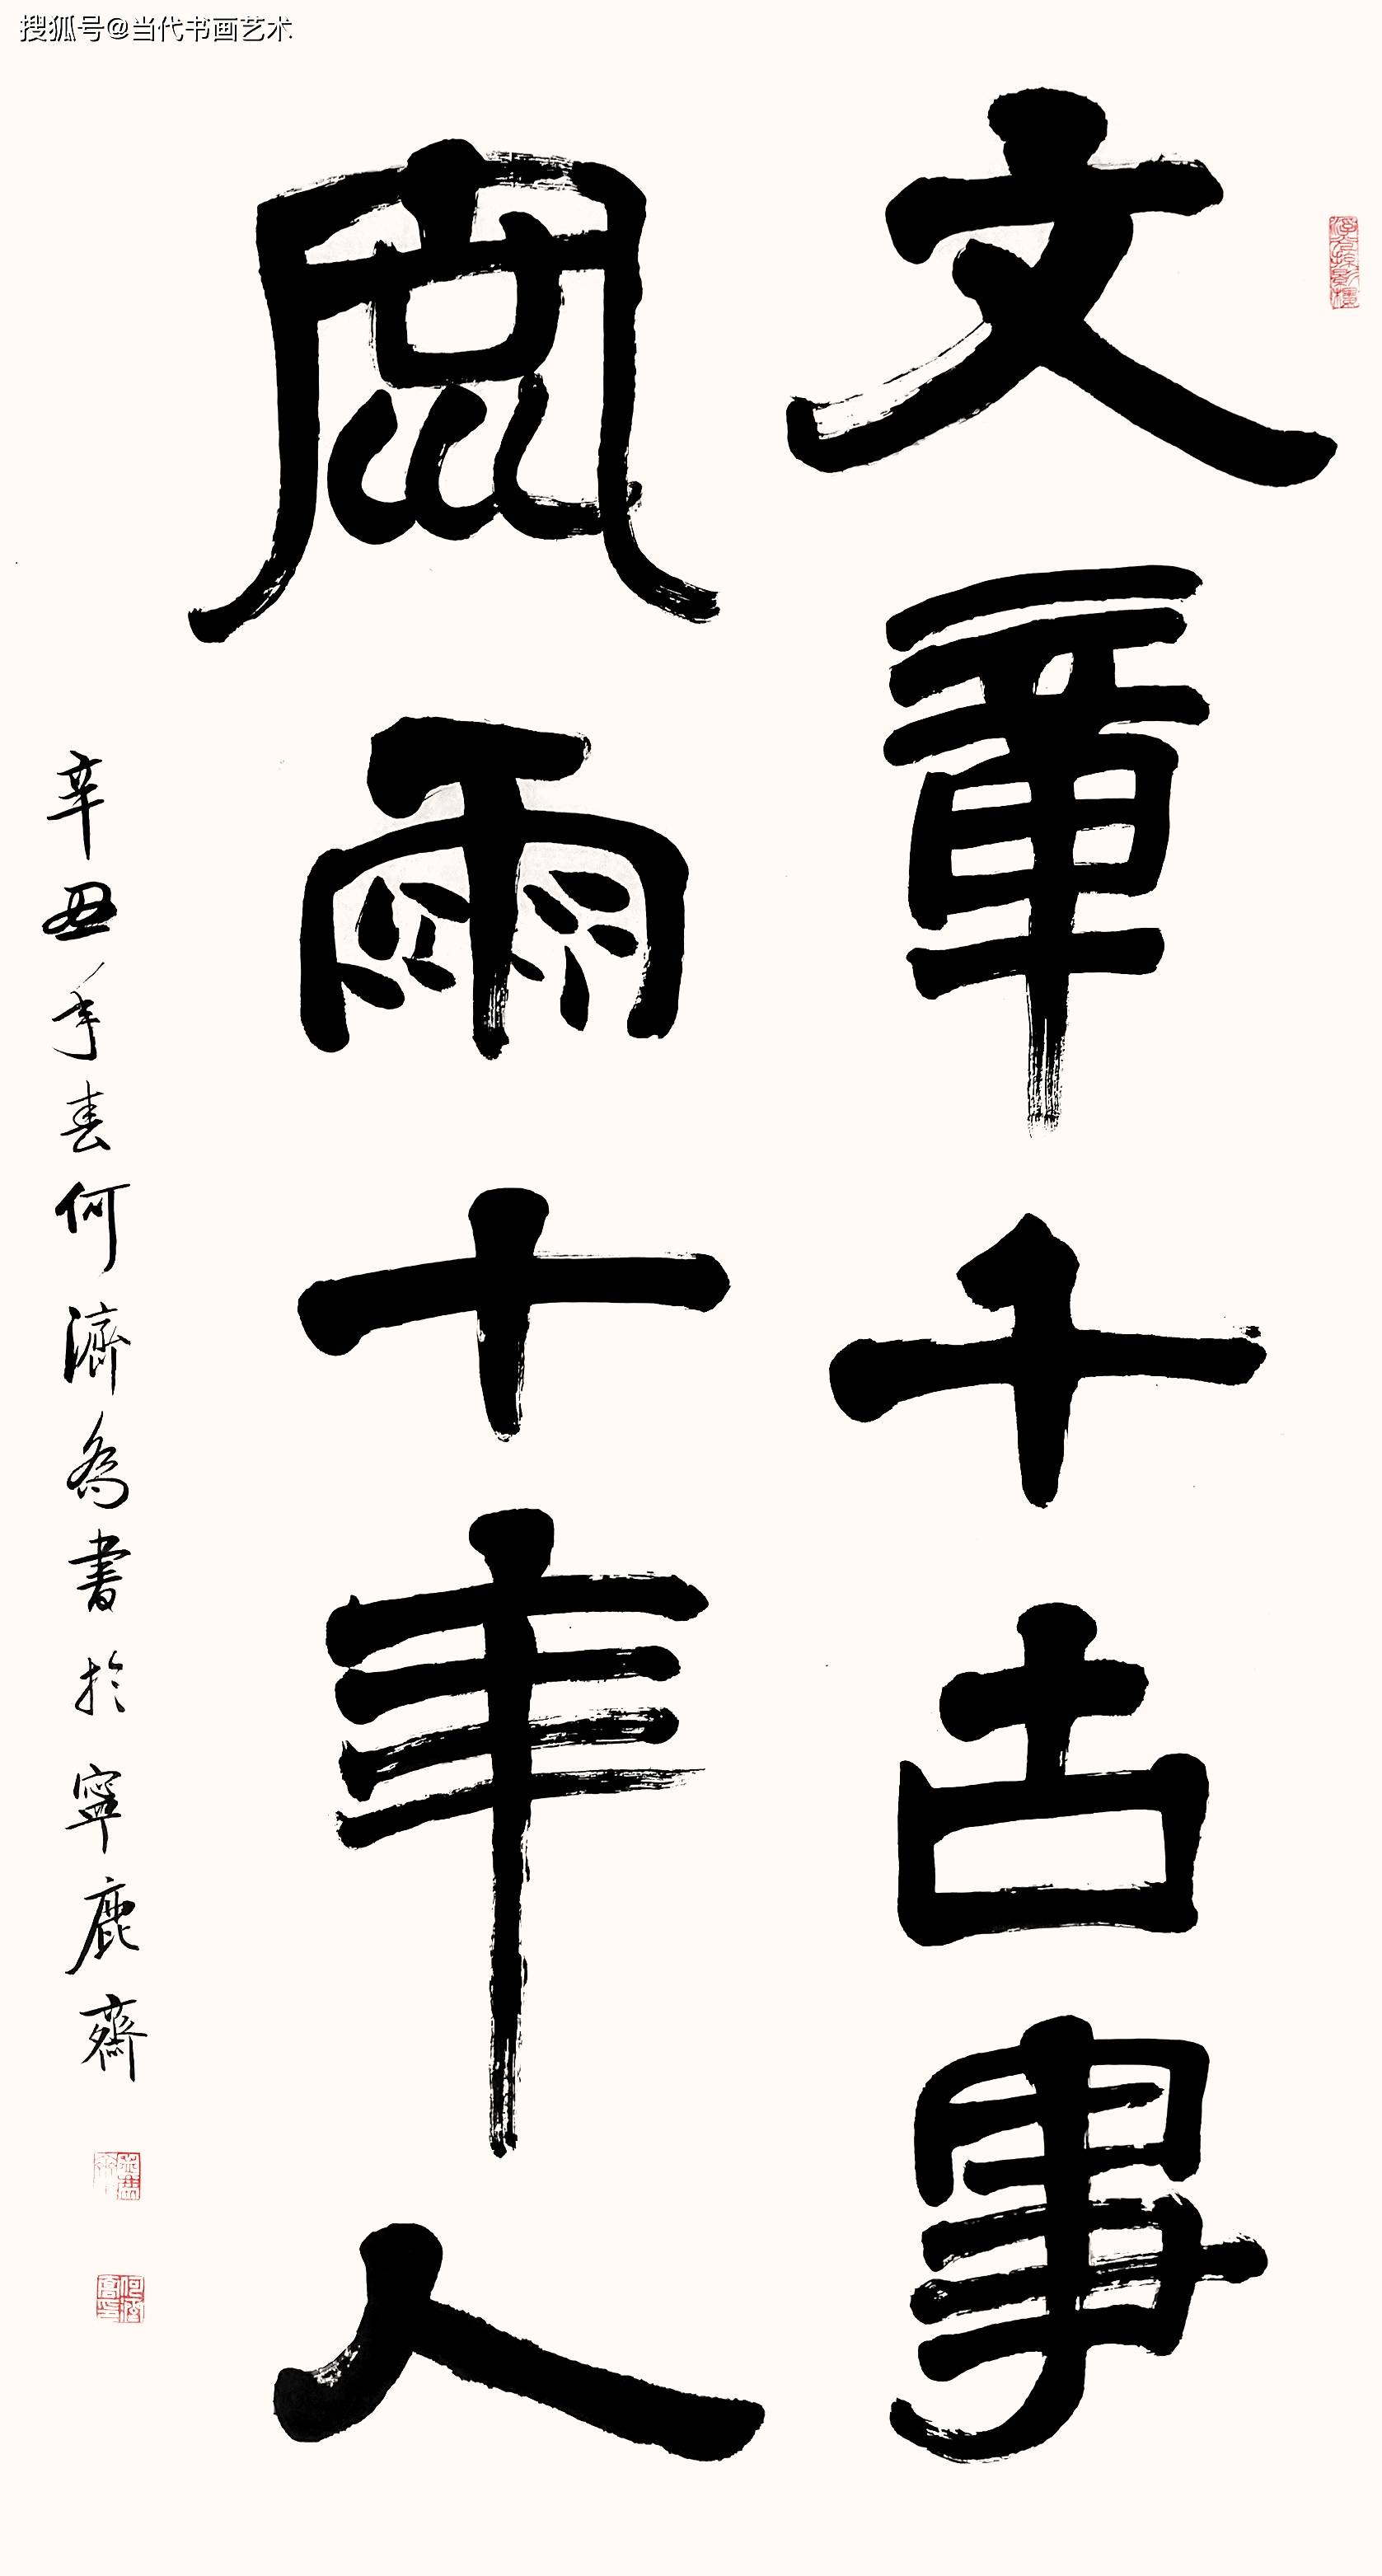 搜狐号@当代书画艺术
文章千古事
風雨十年人
辛丑年春何濟為書於寧鹿齋